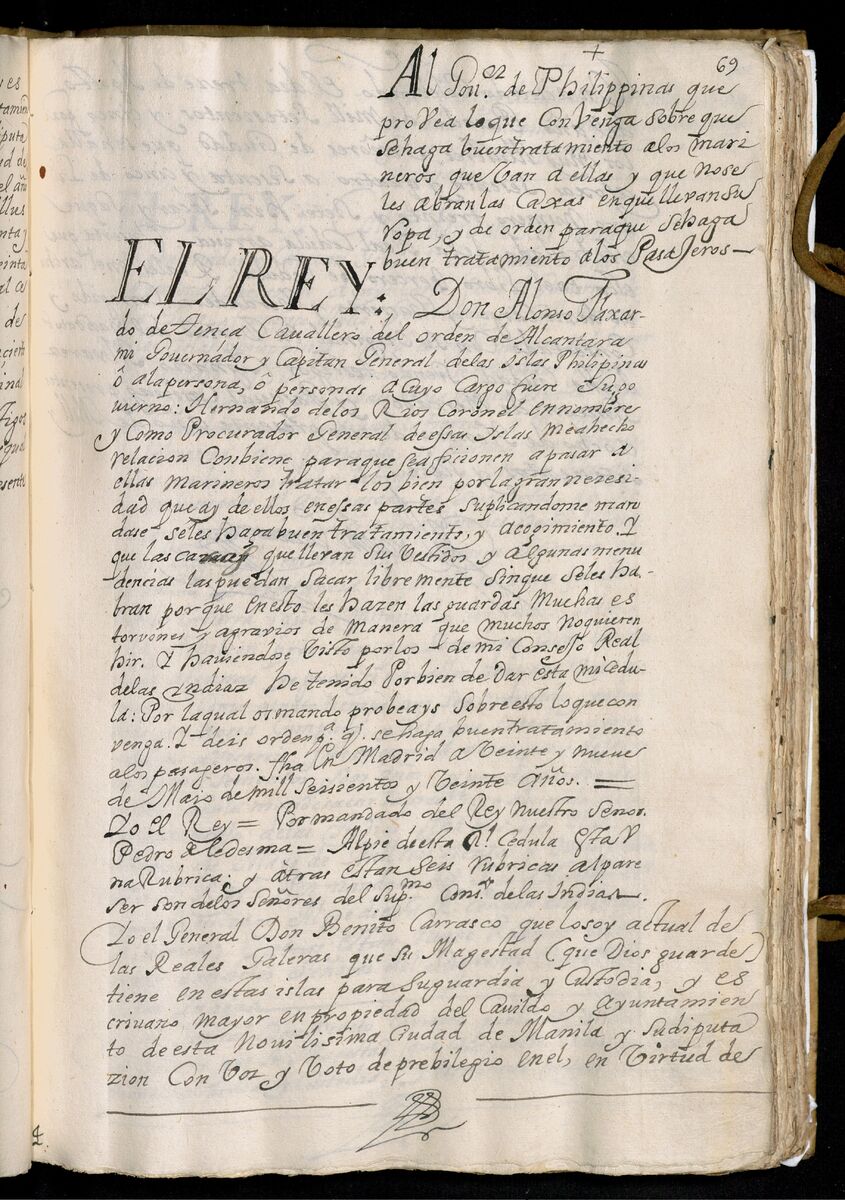 69
+
Al Gou.or de Philippinas que
proVea lo que ConVenga sobre que
sehaga buentratamiento alos mari
neros que Van a ellas y que nose
les abran las Caxas enquellevan su
ropa, y de orden paraque sehaga
buen tratamiento alos Pasajeros
EL REY: Don Alonso Faxar-
do de tença Cavallero del orden de Alcantara
mi Governador y Capitan General delas islas Philipinas
ô ala persona, ô personas acuyo Cargo fuere sugo
vierno: Hernando delos Rios Coronel ennombre
y Como Procurador General deessas yslas meahecho
relacion Conbiene paraque seafficionen apasar a
ellas marineros tratar-los bien porlagran nezesi-
dad que ay de ellos enessas partes suplicandome man
dase seles haga buen tratamiento, y acogimiento. Y
que las caxas quellevan sus Vestidos y algunas menu
dencias las puedan sacar libremente sinque seles ha-
bran porque enesto les hazen las guardas Muchas es
torvones y agravios de manera que muchos noquieren
hir. Y haviendose Visto porlos de mi Consejo Real
delas yndiaz he tenido Porbien de dar esta miCedu-
la: Por laqual osmando probeays sobre esto lo que con
venga. Y deis orden p.a q.e sehaga buentratamiento
alos pasageros. fha en Madrid a Veinte y nueve
de Maio de mill Seisientos y Veinte años. =
Yo el Rey = Pormandado del Rey nuestro señor.
Pedro de Ledesma = Alpie deesta R.l Cedula esta V
na Rubrica; y àtras estan Seis rubricas alpare
ser son delos Señores del Sup.mo Cons.o delas Indias.
Yo el General Don Benito Carrasco que losoy actual de
las Reales Galeras que su Magestad (que Dios guarde)
tiene en estas islas para suguardia y Custodia, y es
crivano mayor enpropiedad del Cavildo y Ayuntamien
to de esta Novilisima Ciudad de Manila y sudiputa
zion Con Voz y Voto deprebilegio enel, en Virtud de